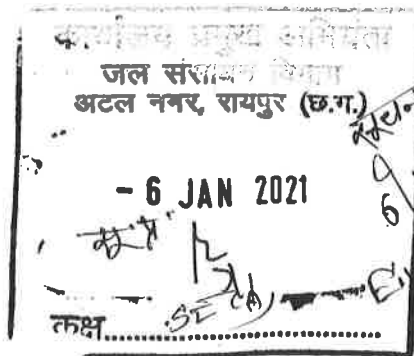 कार्यालय प्रमुख अभियंता
जल संसाधन विभाग
अटल नगर, रायपुर (छ.ग.)
- 6 JAN 2021
6
SE (A)
कक्ष